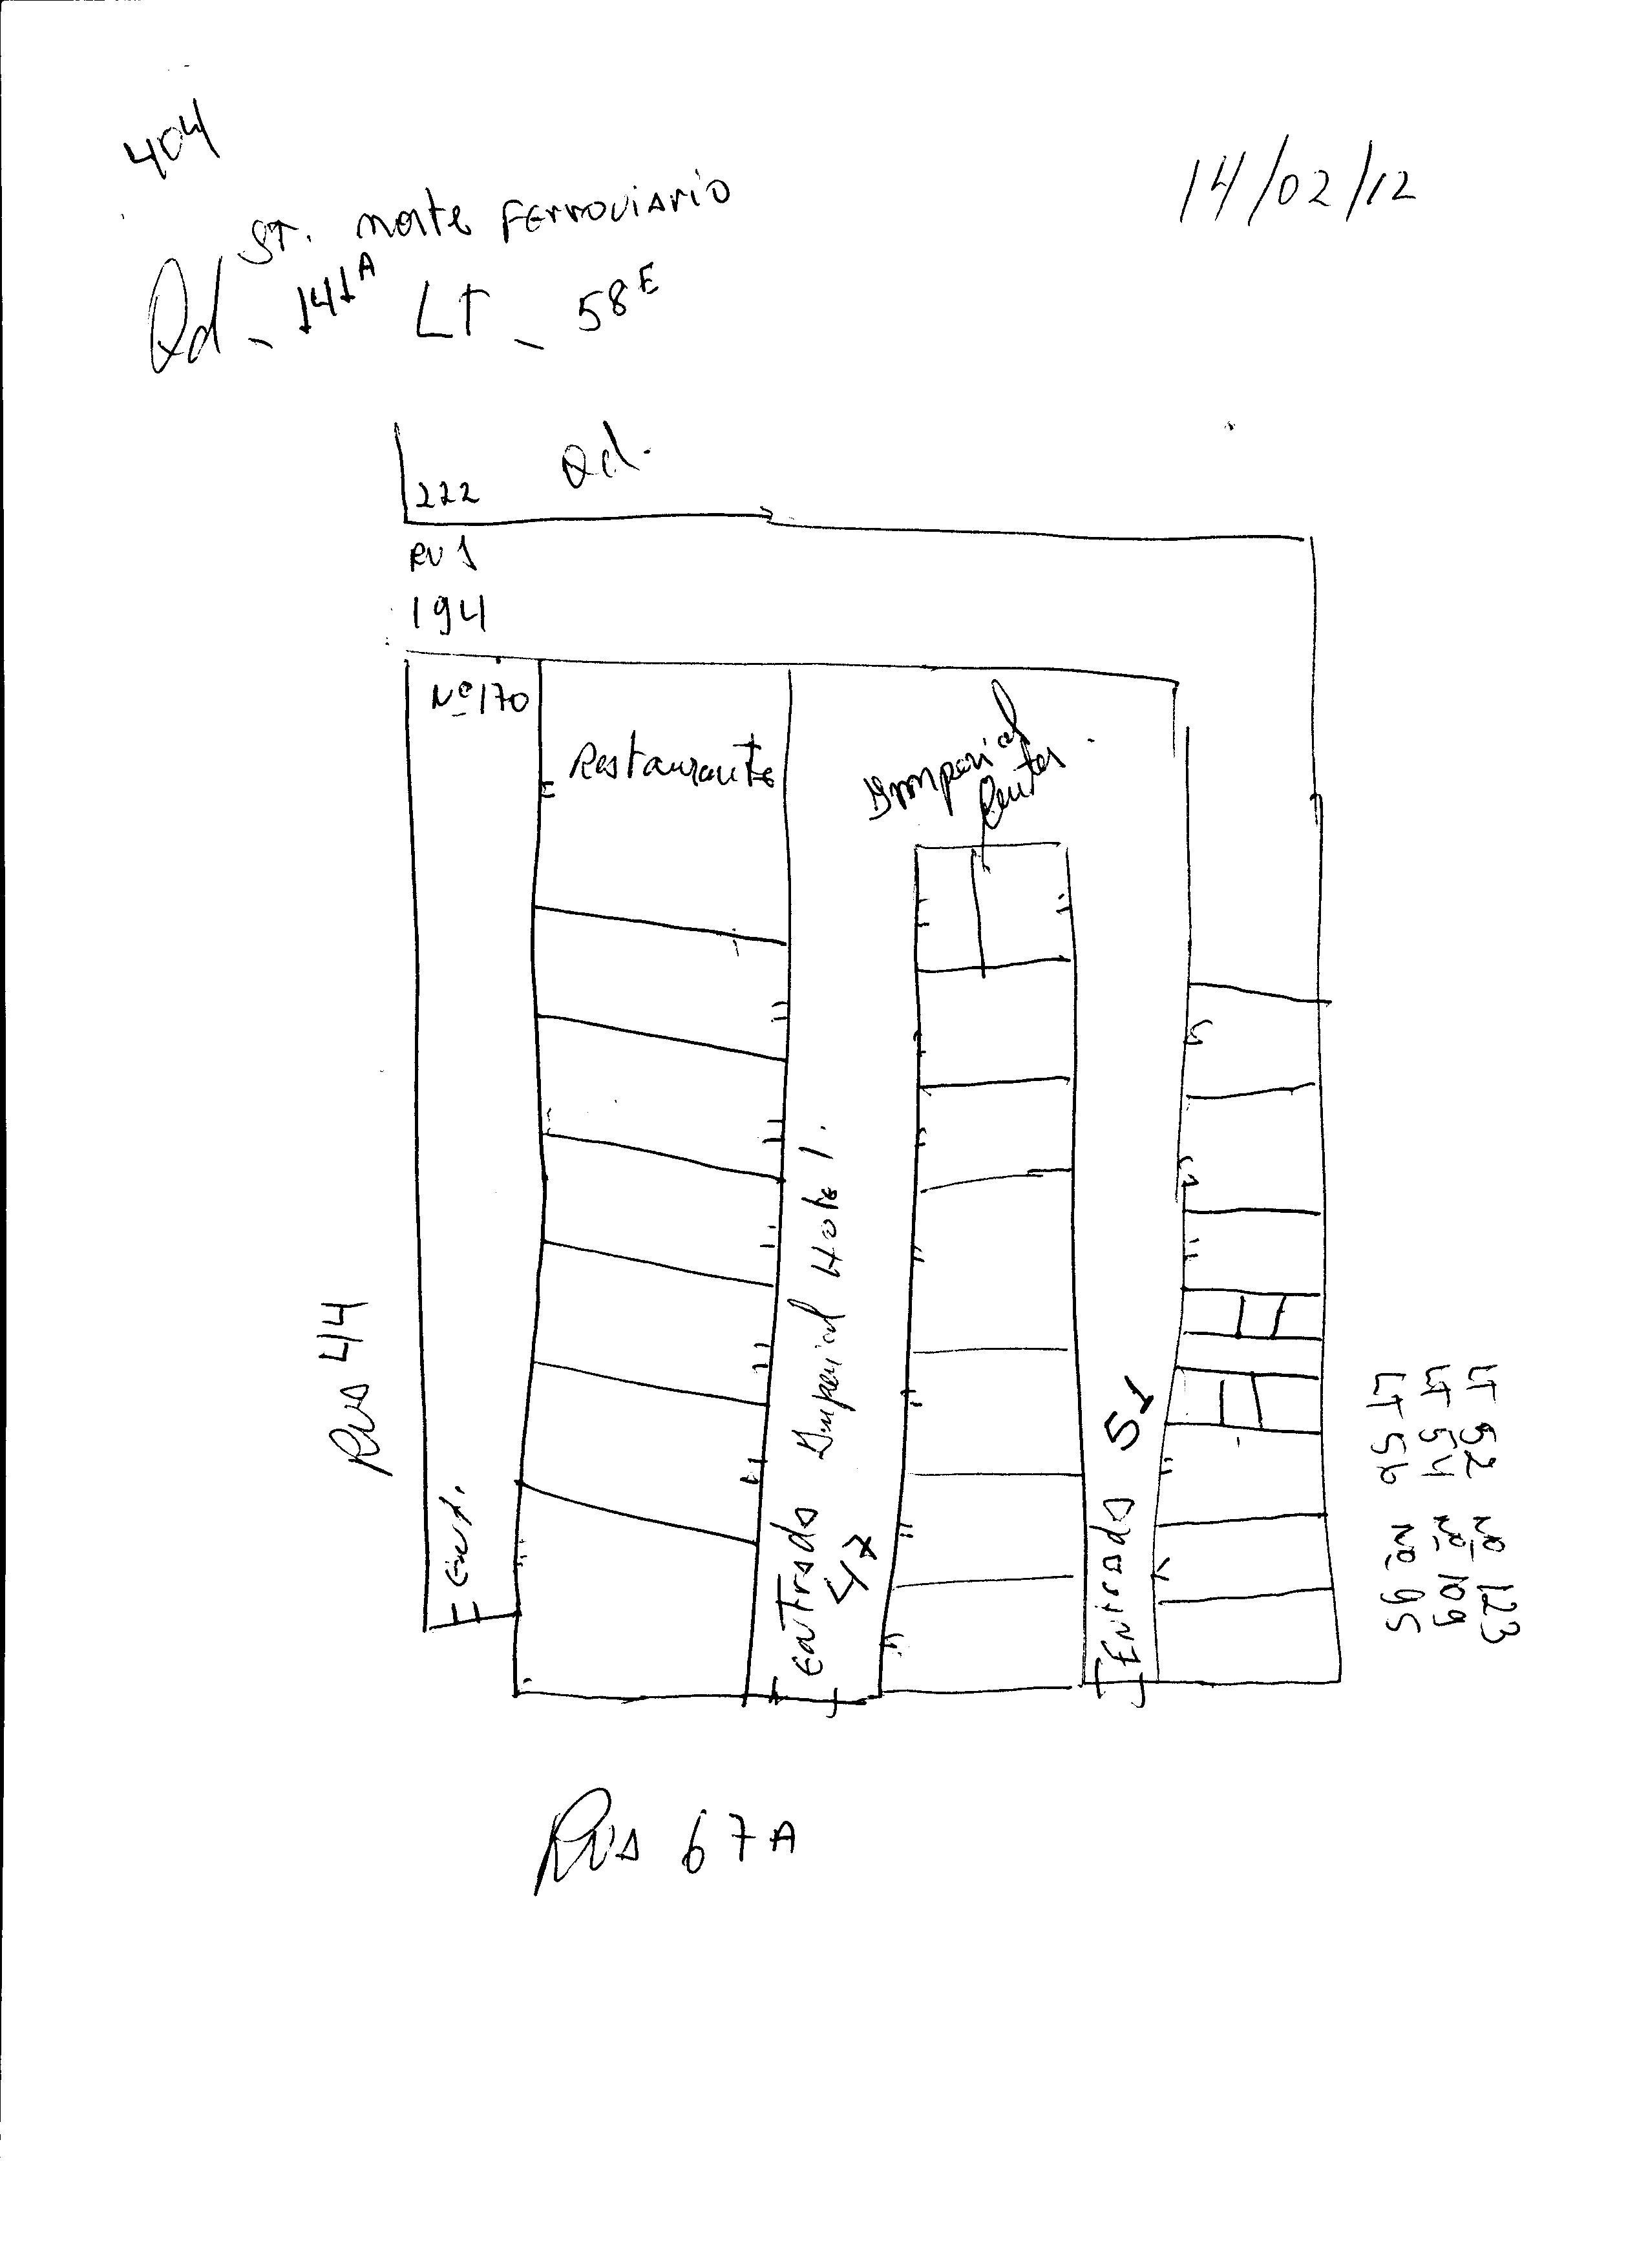 404
14/02/12
ST. norte FERROVIARIO
Qd - 141A LT - 58E
222 Qd.
RV 1
194
Nº 170
Restaurante
Imperial
Center
Entrada Imperial Hotel.
47
Entrada 51
Rua 44
Ent.
LT 52 Nº 123
LT 54 Nº 109
LT 56 Nº 95
Rua 67A